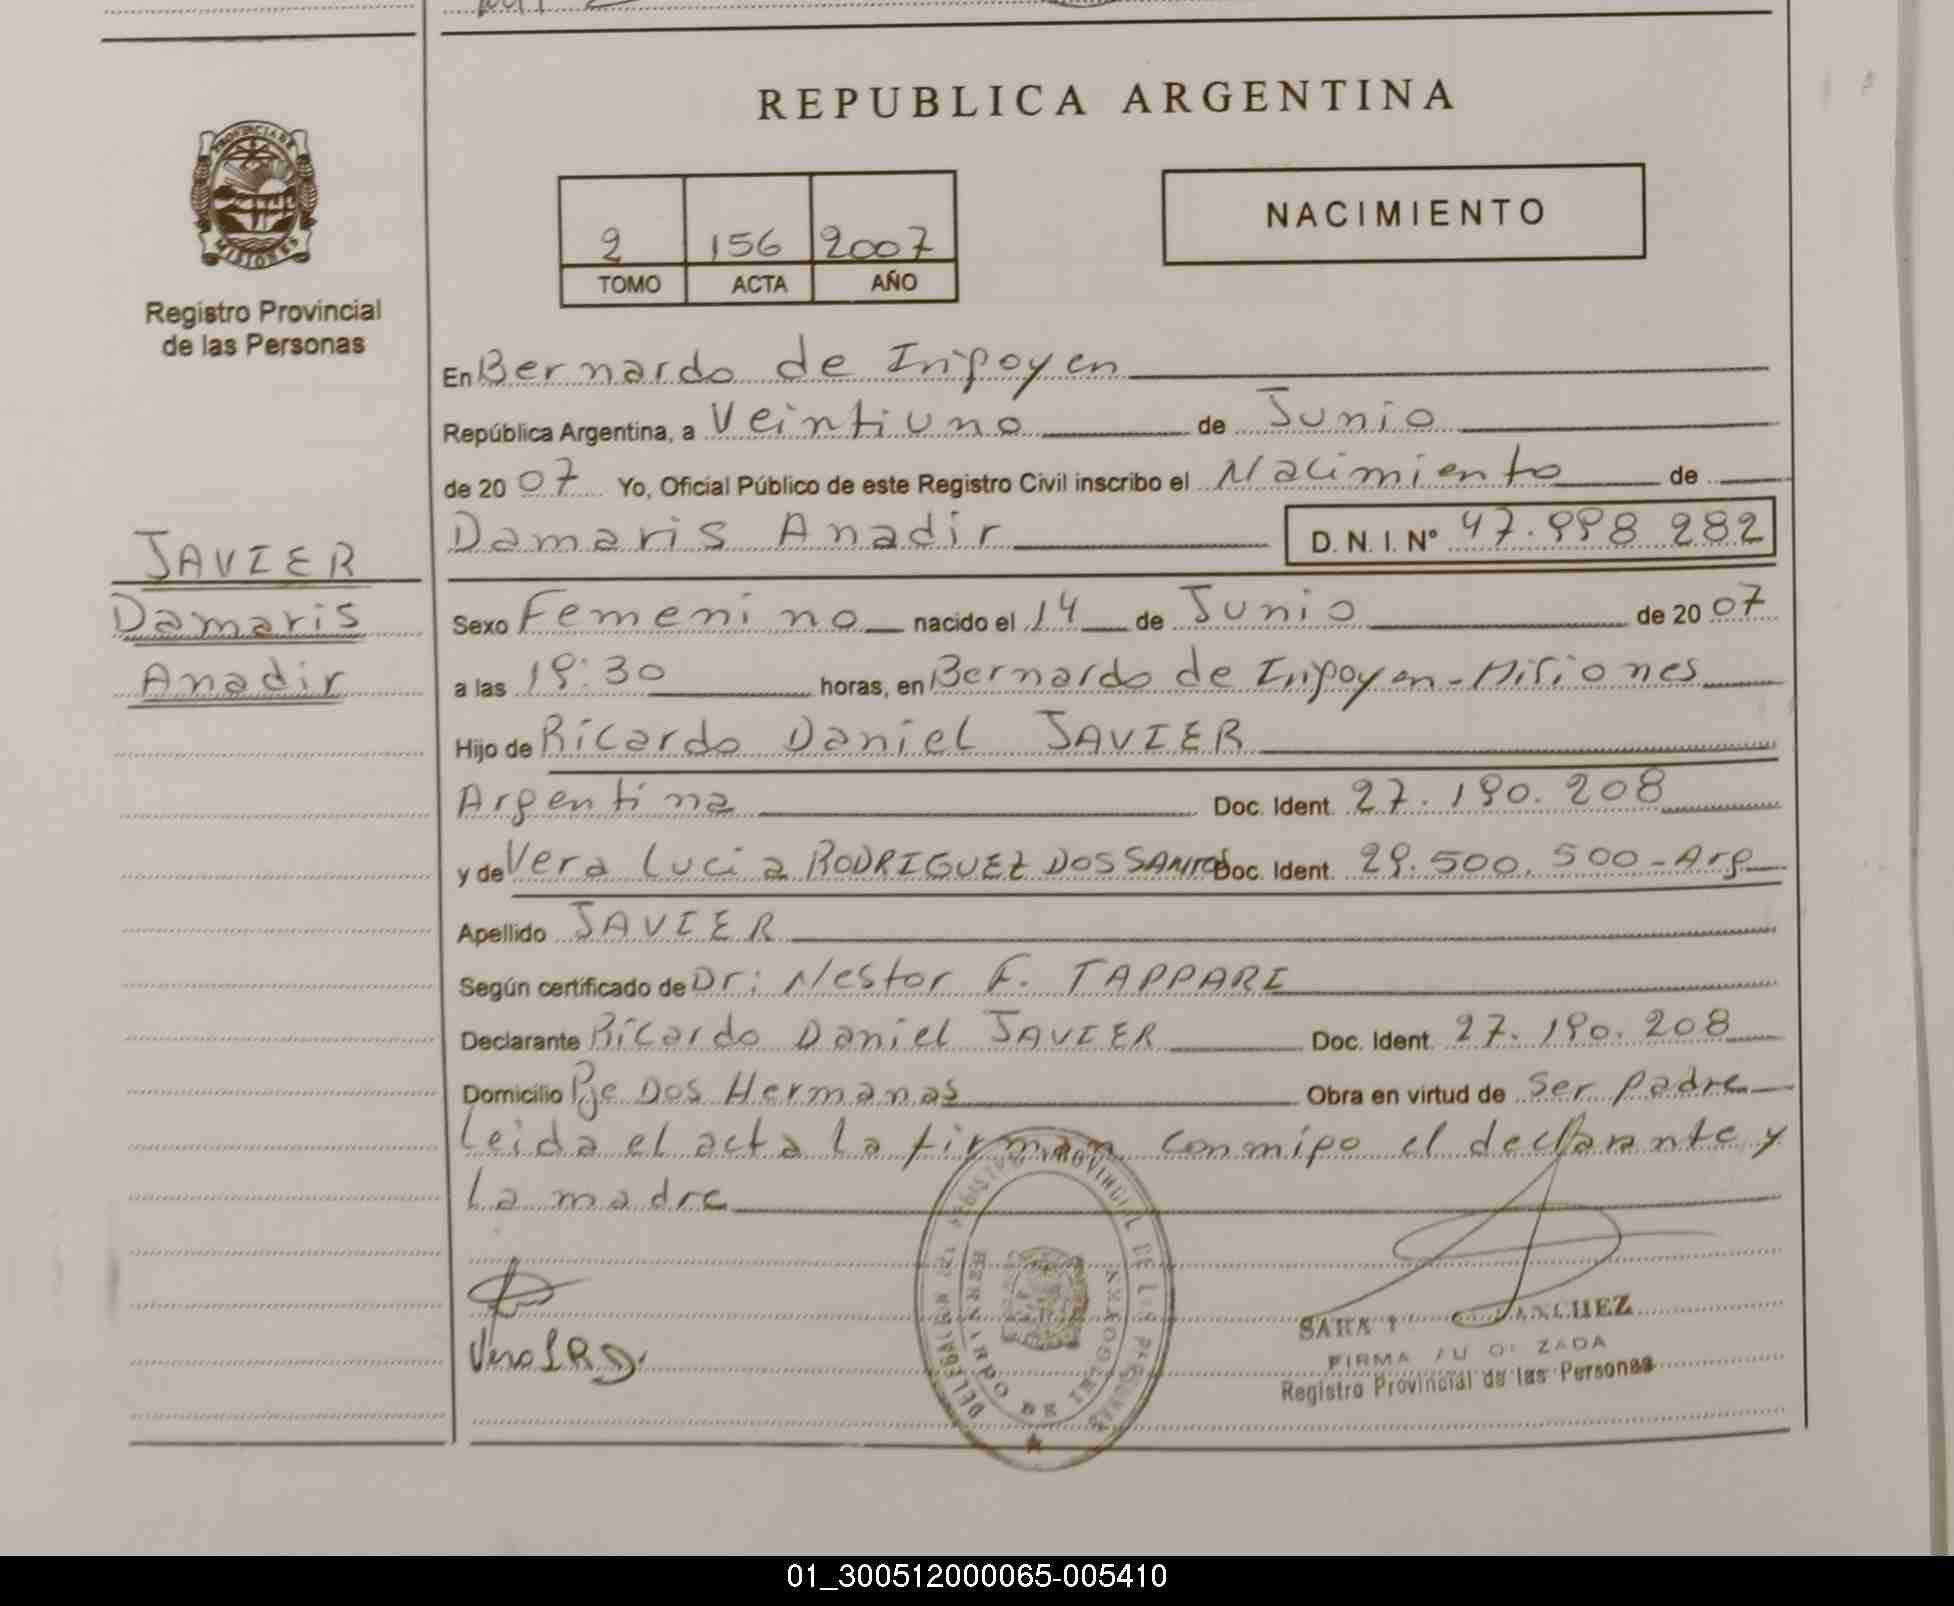 REPUBLICA ARGENTINA
PROVINCIA DE
MISIONES
Registro Provincial
de las Personas
2 156 2007
TOMO ACTA AÑO
NACIMIENTO
En Bernardo de Irigoyen
República Argentina, a Veintiuno de Junio
de 2007 Yo, Oficial Público de este Registro Civil inscribo el Nacimiento de
Damaris Anadir D. N. I. Nº 47.998 282
JAVIER
Damaris
Anadir
Sexo Femenino nacido el 14 de Junio de 2007
a las 19:30 horas, en Bernardo de Irigoyen - Misiones
Hijo de Ricardo Daniel JAVIER
Argentina Doc. Ident. 27.190.208
y de Vera Lucia RODRIGUEZ DOS SANTOS Doc. Ident. 29.500.500 - Arg
Apellido JAVIER
Según certificado de Dr: Nestor F. TAPPARI
Declarante Ricardo Daniel JAVIER Doc. Ident. 27.190.208
Domicilio Pje Dos Hermanas Obra en virtud de ser padre
Leida el acta la firman conmigo el declarante y
la madre
DELEGACION REGISTRO PROVINCIAL DE LAS PERSONAS
BERNARDO DE IRIGOYEN
SARA SANCHEZ
FIRMA AUTORIZADA
Registro Provincial de las Personas
01_300512000065-005410